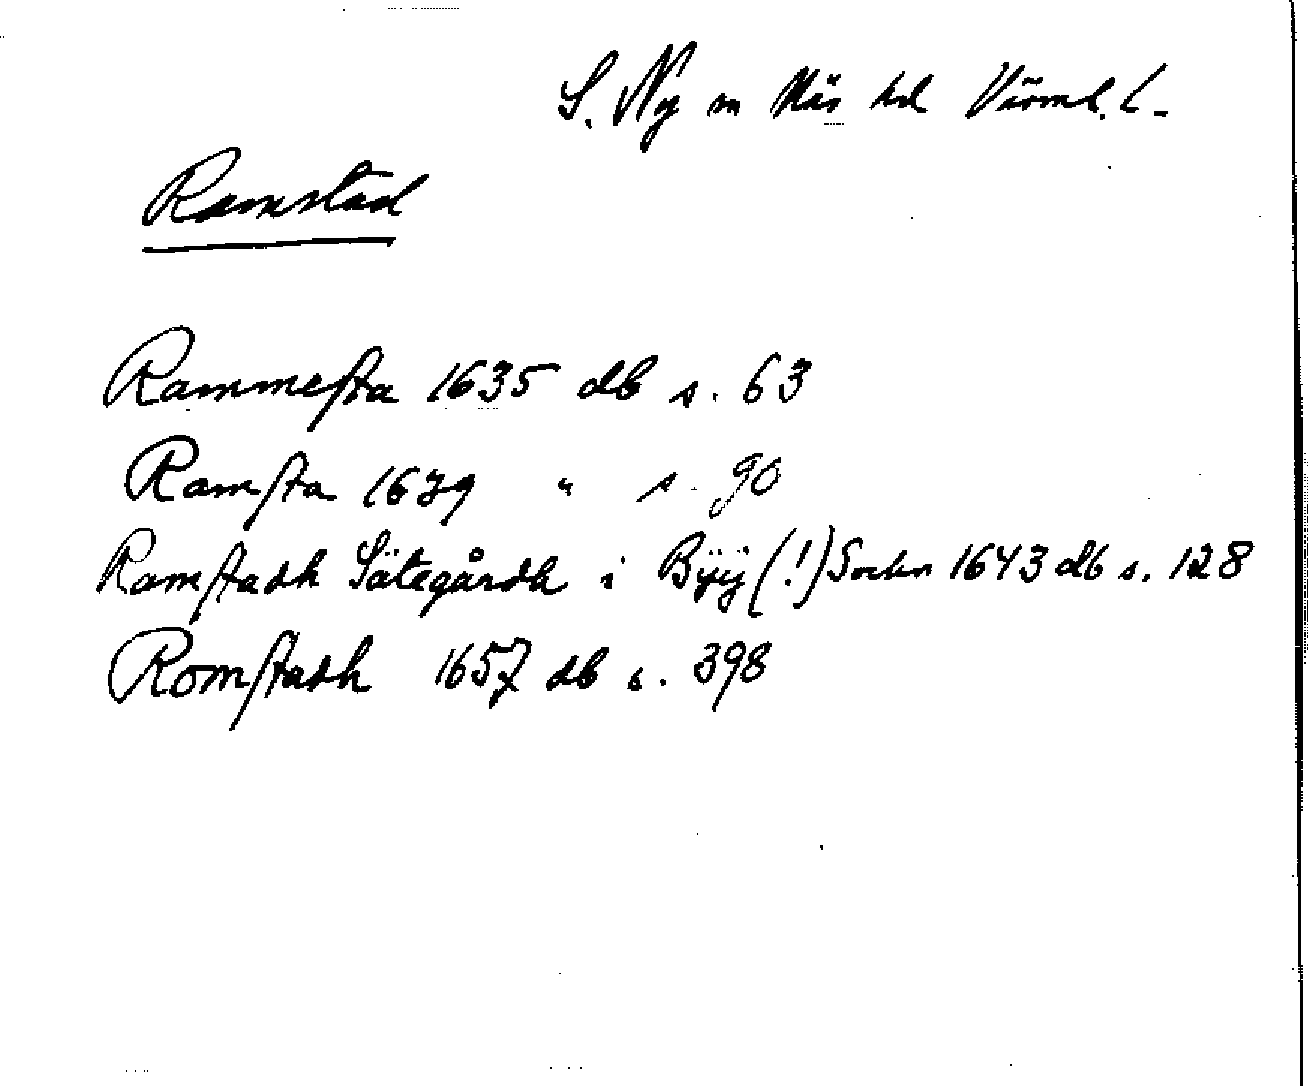 S. Ny sn Näs hd Värml. l.
Ramstad
Rammesta 1635 db s. 63
Ramsta 1639 " s. 90
Ramstadh Sätegårdh i Bÿÿ (!) Sochn 1643 db s. 128
Romstadh 1657 db s. 398